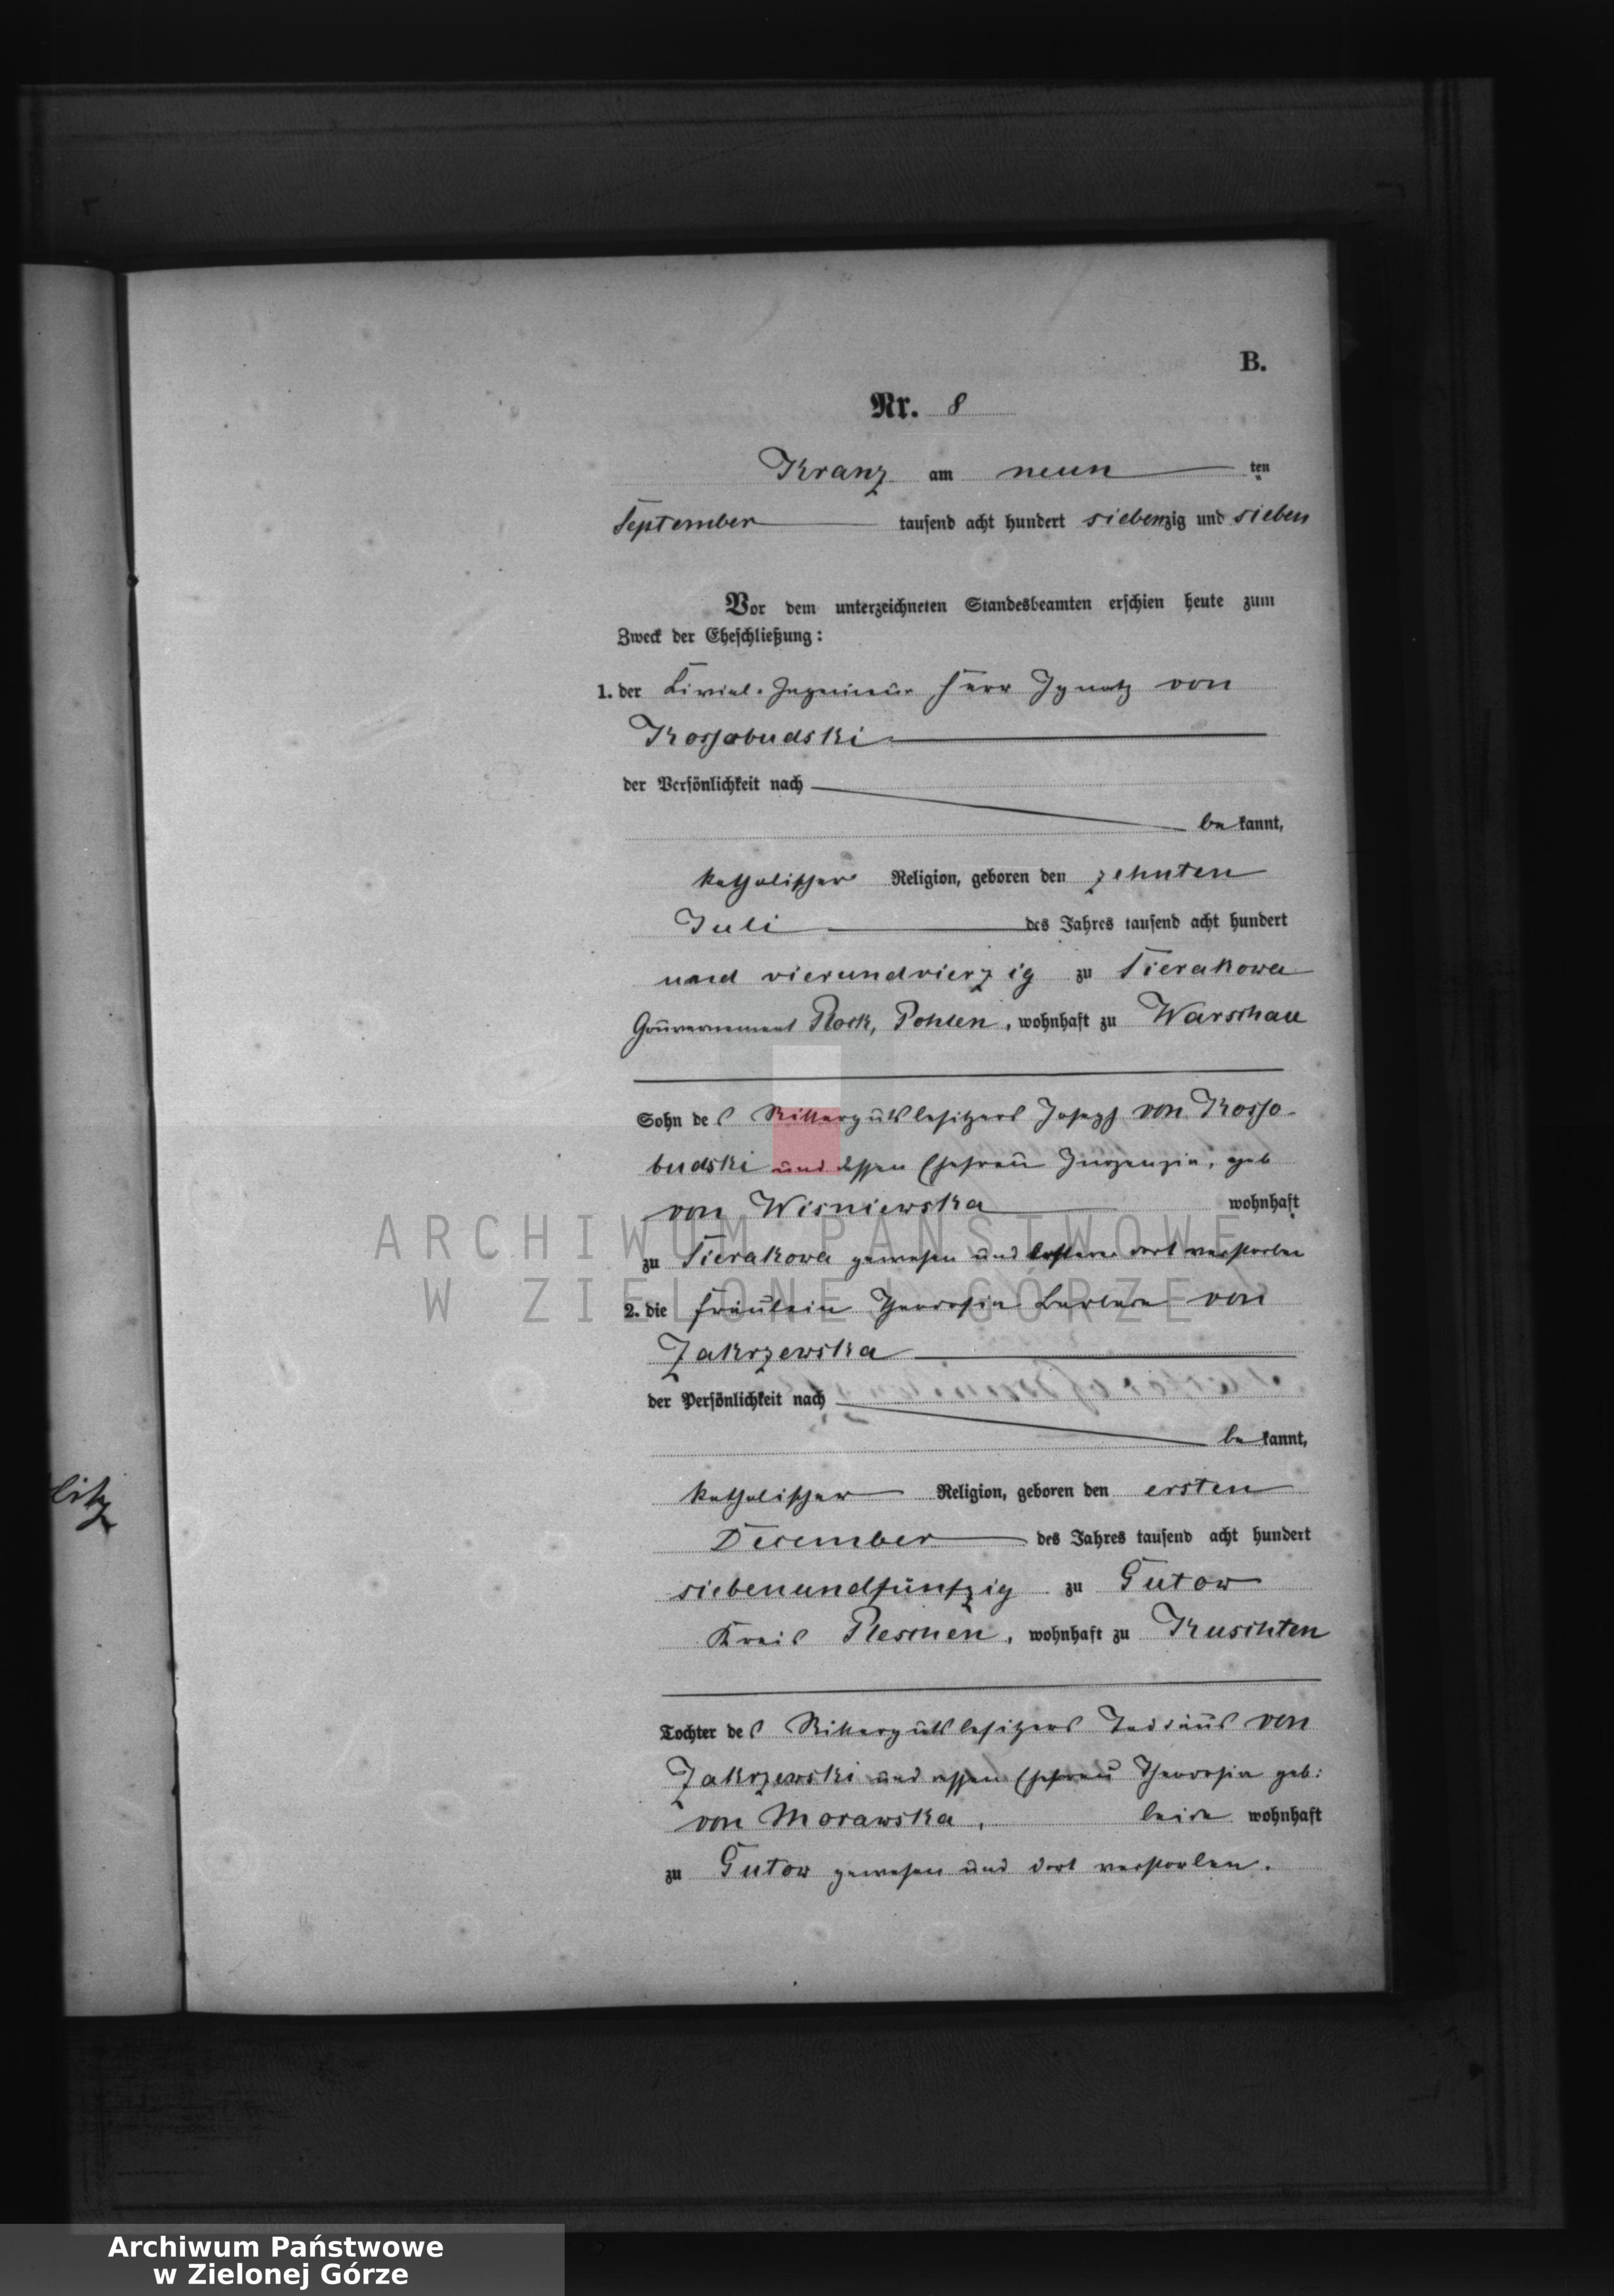 B.
Nr. 8
Kranz am neun ten
September tausend acht hundert siebenzig und sieben
Vor dem unterzeichneten Standesbeamten erschien heute zum
Zweck der Eheschließung:
1. der Civial-Ingenieur Herr Ignatz von
Kossobudski
der Persönlichkeit nach
be kannt,
katholischer Religion, geboren den zehnten
Juli des Jahres tausend acht hundert
und vierundvierzig zu Sierakowa
Gouvernement Plock, Pohlen, wohnhaft zu Warschau
Sohn des Rittergutsbesitzers Joseph von Kosso-
budski und dessen Ehefrau geb
von Wisniewska wohnhaft
zu Sierakowa gewesen und dort verstorben
2. die Fräulein Theodosia Barbara von
Zakrzewska
der Persönlichkeit nach
be kannt,
katholischer Religion, geboren den ersten
December des Jahres tausend acht hundert
siebenundfünfzig zu Gutow
Kreis Pleschen, wohnhaft zu Kuschten
Tochter des Rittergutsbesitzers von
Zakrzewski und dessen Ehefrau Theodosia geb:
von Morawska, beide wohnhaft
zu Gutow gewesen und dort verstorben.
litz
ARCHIWUM PAŃSTWOWE
W ZIELONEJ GÓRZE
Archiwum Państwowe
w Zielonej Górze